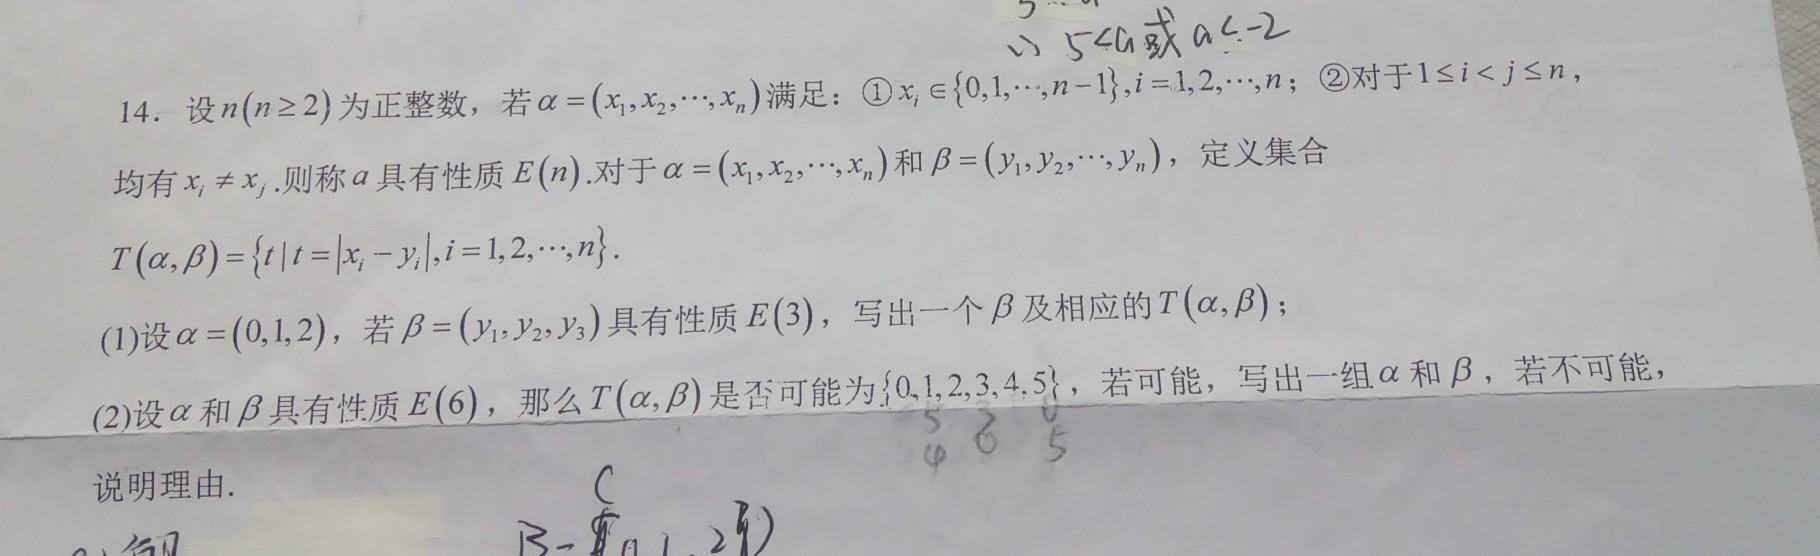 ∴ 5<a或a<-2
14. 设n(n≥2)为正整数，若α=(x₁,x₂,⋯,xₙ)满足：①xᵢ∈{0,1,⋯,n-1},i=1,2,⋯,n；②对于1≤i<j≤n，
均有xᵢ≠xⱼ.则称a具有性质E(n).对于α=(x₁,x₂,⋯,xₙ)和β=(y₁,y₂,⋯,yₙ)，定义集合
T(α,β)={t|t=|xᵢ-yᵢ|,i=1,2,⋯,n}.
(1)设α=(0,1,2)，若β=(y₁,y₂,y₃)具有性质E(3)，写出一个β及相应的T(α,β)；
(2)设α和β具有性质E(6)，那么T(α,β)是否可能为{0,1,2,3,4,5}，若可能，写出一组α和β，若不可能，
5
4 5
说明理由.
C